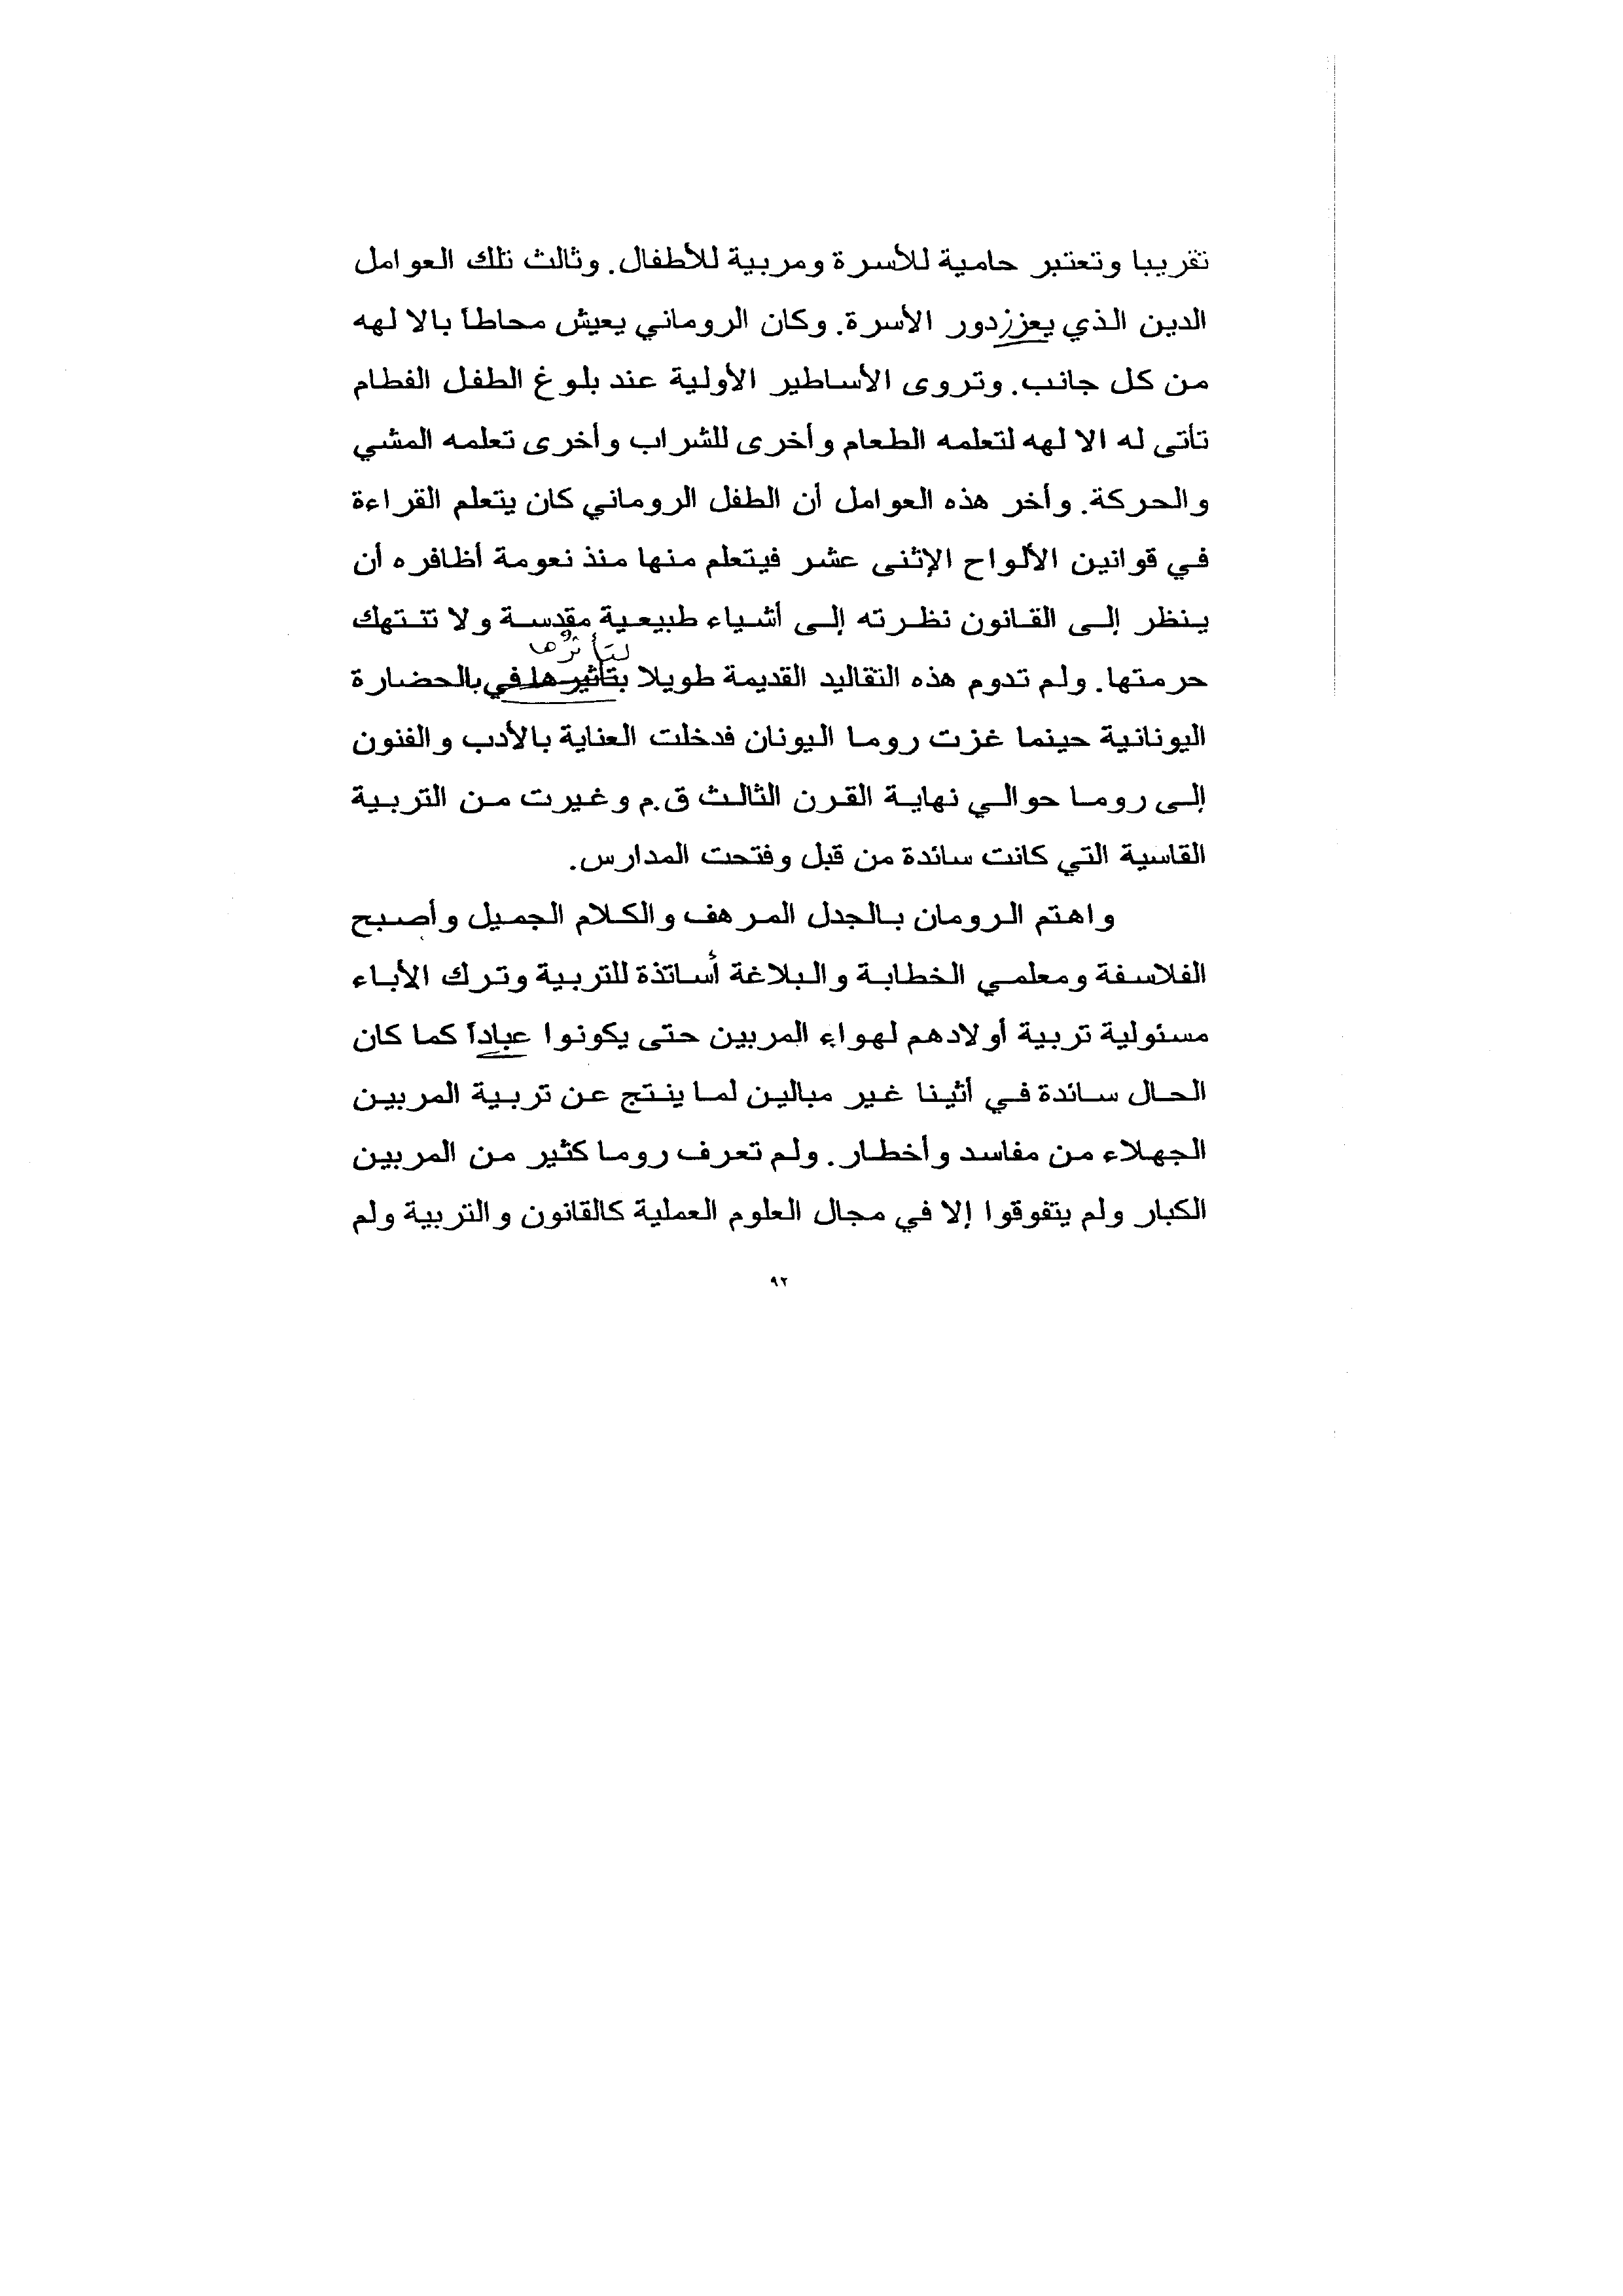 تقريبا وتعتبر حامية للأسرة ومربية للأطفال. وثالث تلك العوامل
الدين الذي يعزز دور الأسرة. وكان الروماني يعيش محاطاً بالا لهه
من كل جانب. وتروى الأساطير الأولية عند بلوغ الطفل الفطام
تأتى له الا لهه لتعلمه الطعام وأخرى للشراب وأخرى تعلمه المشي
والحركة. وأخر هذه العوامل أن الطفل الروماني كان يتعلم القراءة
في قوانين الألواح الإثنى عشر فيتعلم منها منذ نعومة أظافره أن
ينظر إلى القانون نظرته إلى أشياء طبيعية مقدسة ولا تنتهك
لتأثرها
حرمتها. ولم تدوم هذه التقاليد القديمة طويلا بتأثيرها في بالحضارة
اليونانية حينما غزت روما اليونان فدخلت العناية بالأدب والفنون
إلى روما حوالي نهاية القرن الثالث ق.م وغيرت من التربية
القاسية التي كانت سائدة من قبل وفتحت المدارس.
واهتم الرومان بالجدل المرهف والكلام الجميل وأصبح
الفلاسفة ومعلمي الخطابة والبلاغة أساتذة للتربية وترك الأباء
مسئولية تربية أولادهم لهواء المربين حتى يكونوا عباداً كما كان
الحال سائدة في أثينا غير مبالين لما ينتج عن تربية المربين
الجهلاء من مفاسد وأخطار. ولم تعرف روما كثير من المربين
الكبار ولم يتفوقوا إلا في مجال العلوم العملية كالقانون والتربية ولم
٩٢